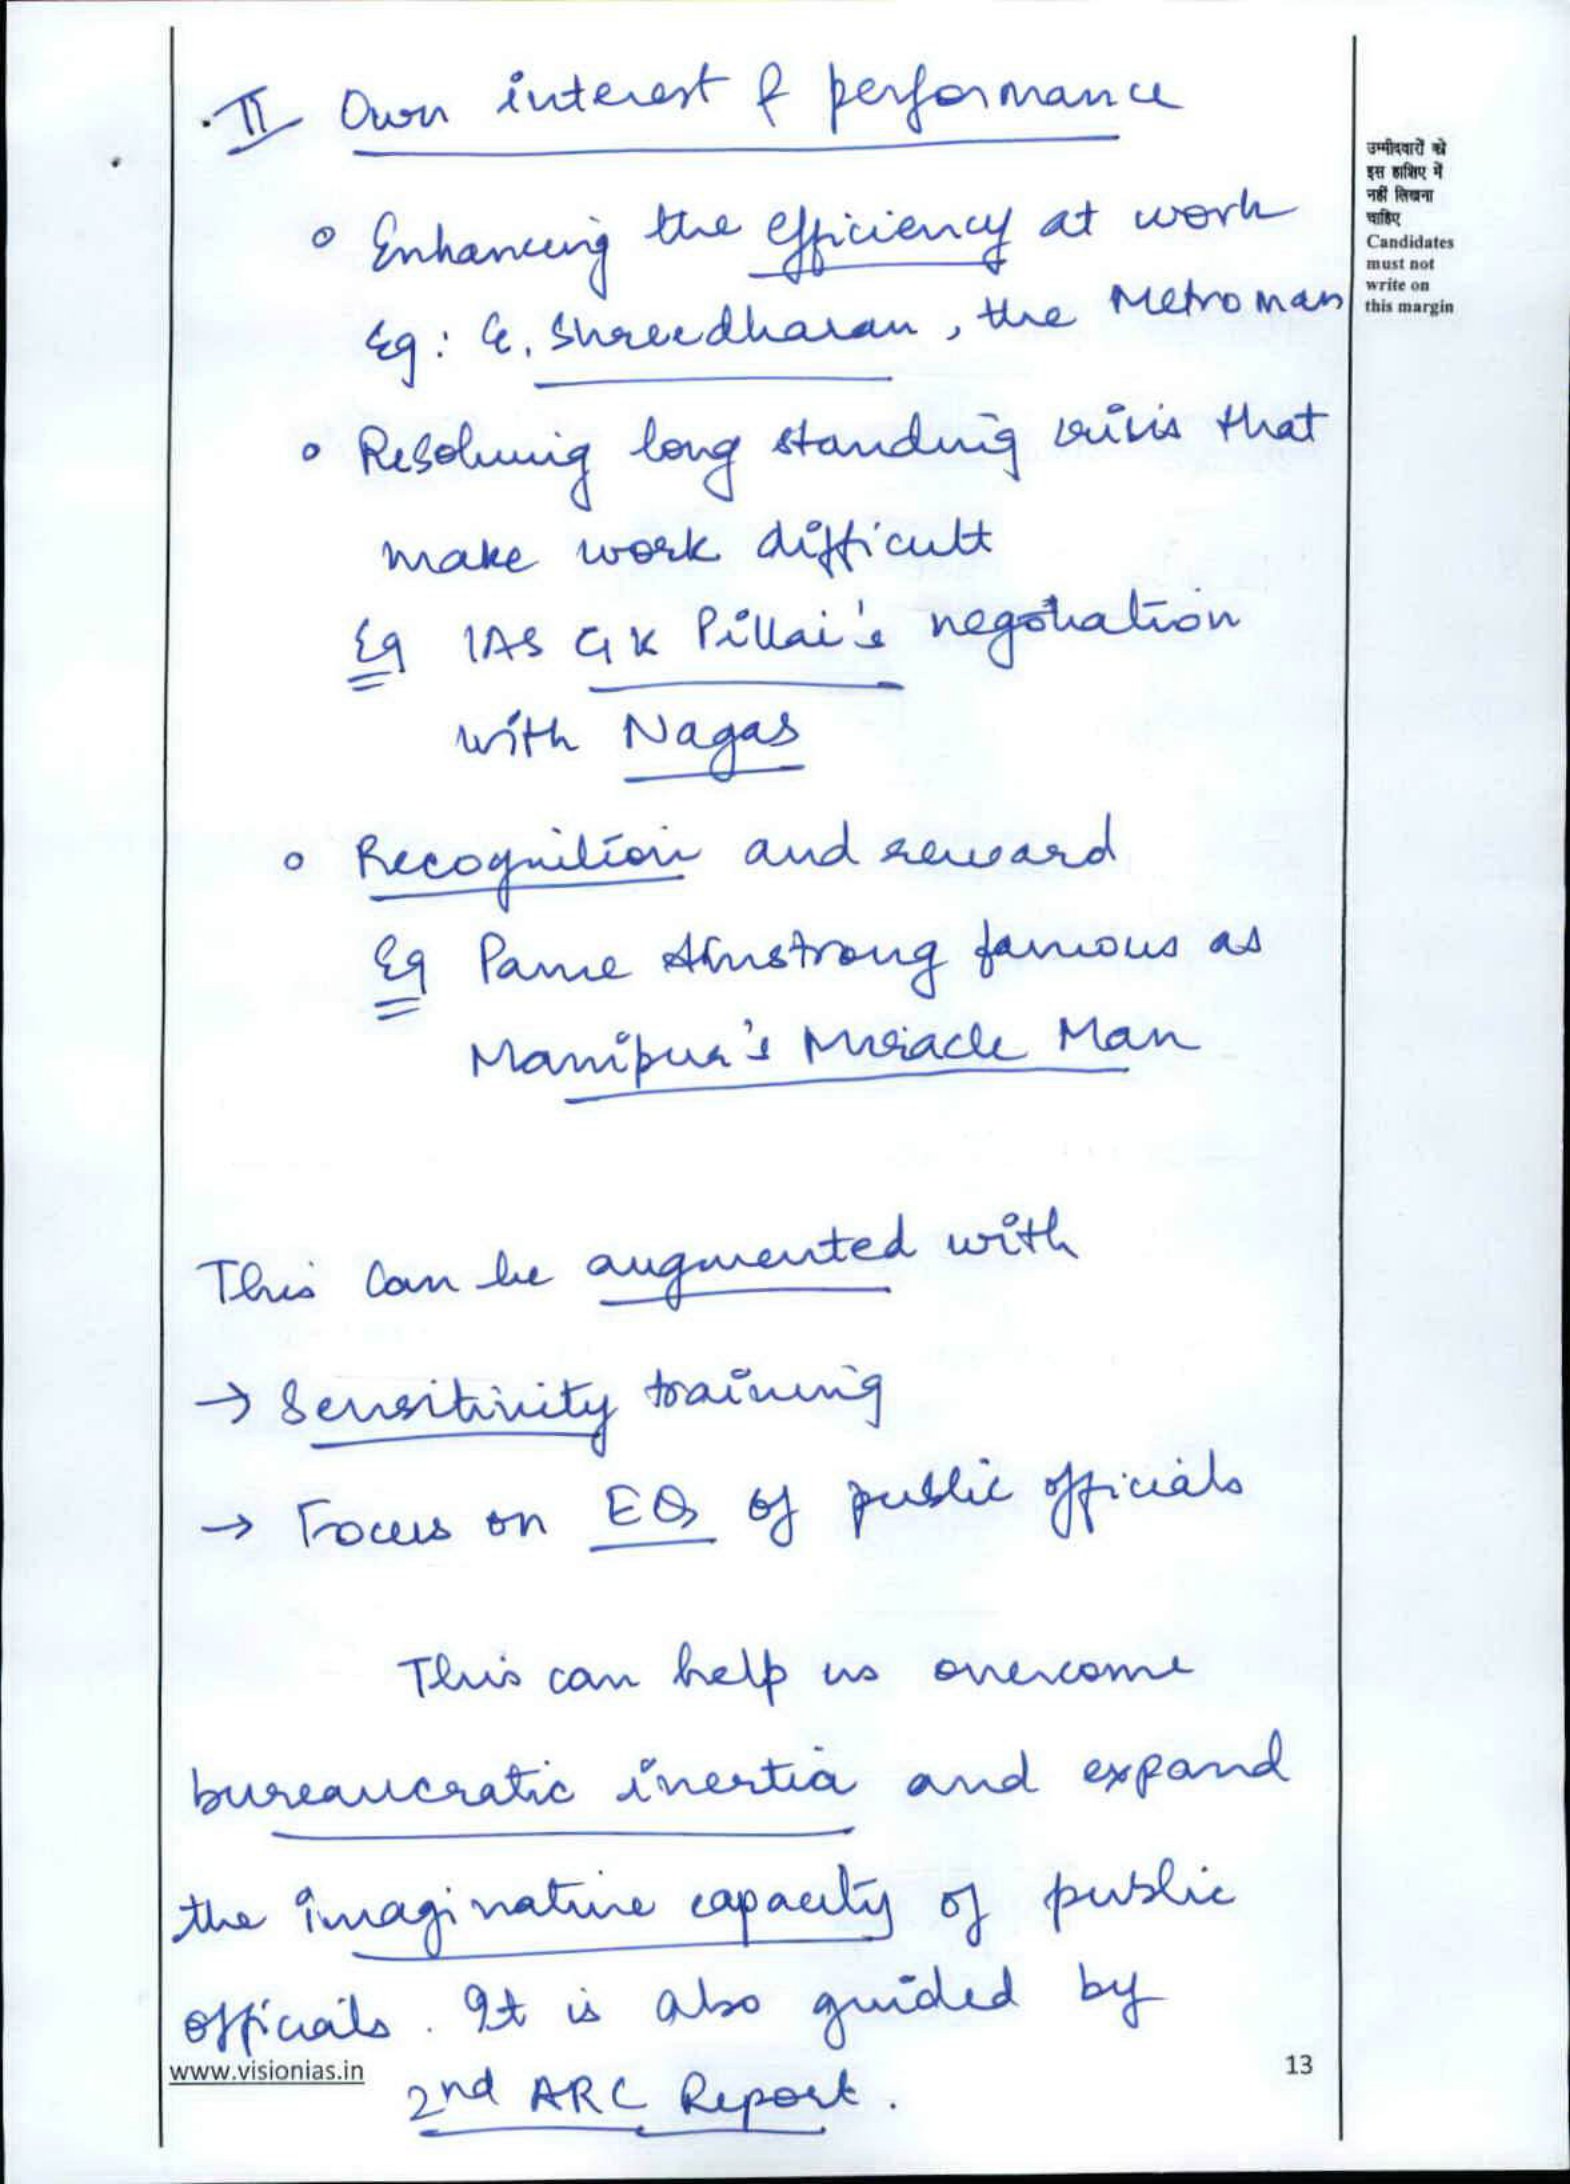 II Own interest & performance
उम्मीदवारों को
इस हाशिए में
नहीं लिखना
चाहिए
Candidates
must not
write on
this margin
Enhancing the efficiency at work
Eg: E. Shreedharan, the Metroman
Resolving long standing crisis that
make work difficult
Eg IAS GK Pillai's negotiation
with Nagas
Recognition and reward
Eg Pame Amstrong famous as
Manipur's Miracle Man
This can be augmented with
→ Sensitivity training
→ Focus on EQ of public officials
This can help us overcome
bureaucratic inertia and expand
the imaginative capacity of public
officials. It is also guided by
www.visionias.in
13
2nd ARC Report.